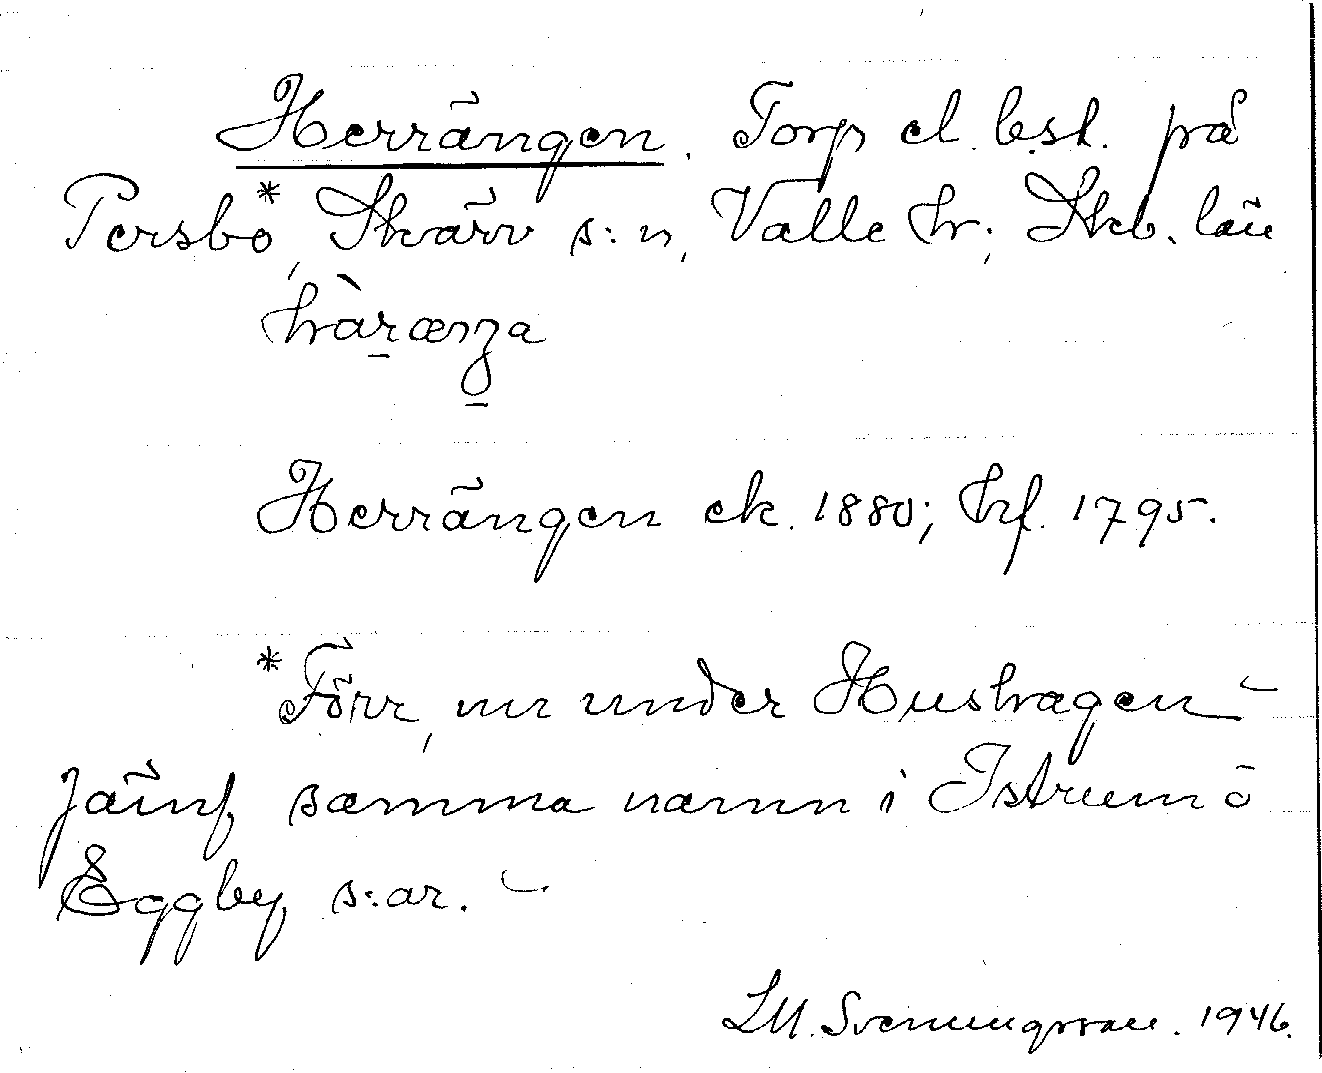 Herrängen. Torp el. best. på
Persbo*, Skärv s:n, Valle hr; Skb. län
hàr̠ænga
Herrängen ek. 1880; hf. 1795.
*Förr, nu under Hushagen –
Jämf. samma namn i Istrum o
Eggby s:ar. –
LM. Svenungsson. 1946.